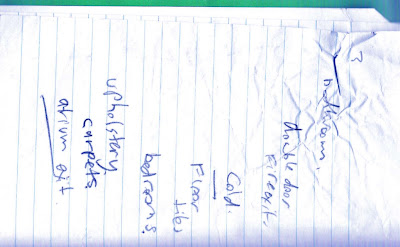 double door
Fire exit.
Cold.
Floor tiles
bedrooms.
upholstery
carpets
atrium exit.